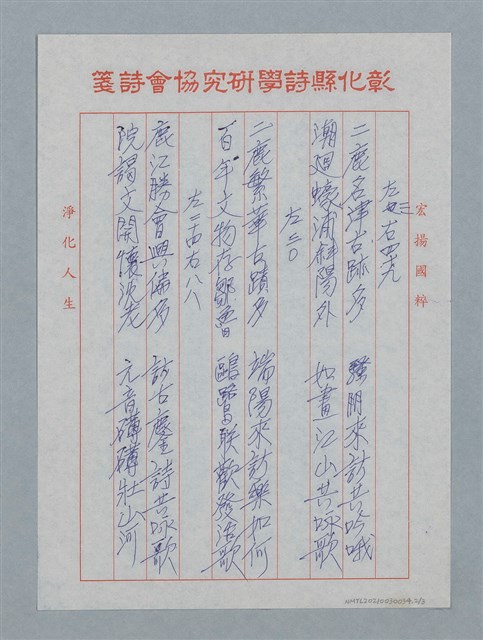 彰化縣詩學研究協會詩箋
宏揚國粹
左七三右四九
二鹿名津古跡多 騷朋來訪共吟哦
潮迴蠔浦斜陽外 如畫江山共咏歌
左三〇
二鹿繁華古蹟多 端陽來訪樂如何
百年文物存鄒魯 鷗鷺聯歡發浩歌
左二十四右八八
鹿江勝會興偏多 訪古慶詩共咏歌
院謁文開懷沈老 元音礴礴壯山河
淨化人生
NMTL20210030034.2/2